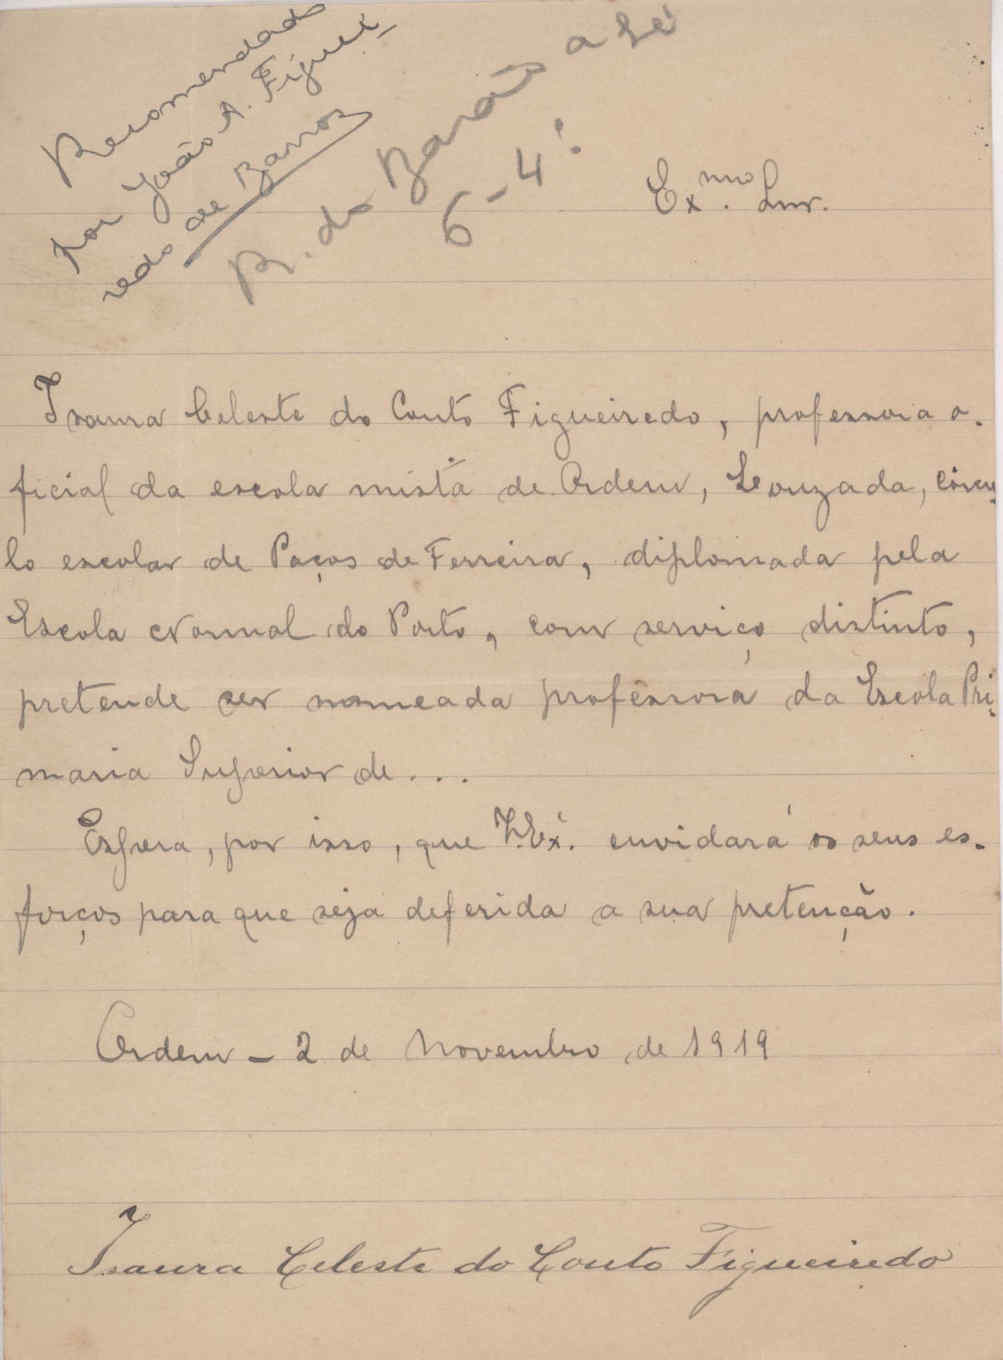 Recomendado
por João A. Figuei-
redo de Barros
R. do Barão a Sé
6-4º
Ex.mo Snr.
Isaura Celeste do Couto Figueiredo, professora o-
ficial da escola mista de Ordem, Louzada, circu-
lo escolar de Paços de Ferreira, diplomada pela
Escola Normal do Porto, com serviço distinto,
pretende ser nomeada professora da Escola Pri-
maria Superior de...
Espera, por isso, que V. Ex.ª envidará os seus es-
forços para que seja deferida a sua pretenção.
Ordem - 2 de Novembro de 1919
Isaura Celeste do Couto Figueiredo